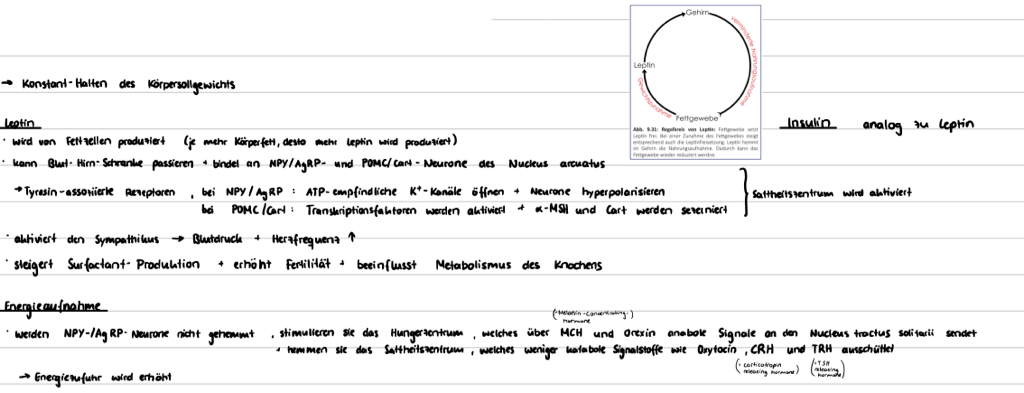 Gehirn
verminderte Nahrungsaufnahme
Leptin
Gewichtszunahme
Fettgewebe
Abb. 9.31: Regelkreis von Leptin: Fettgewebe setzt
Leptin frei. Bei einer Zunahme des Fettgewebes steigt
entsprechend auch die Leptinfreisetzung. Leptin hemmt
im Gehirn die Nahrungsaufnahme. Dadurch kann das
Fettgewebe wieder reduziert werden.
→ Konstant-Halten des Körpersollgewichts
Leptin
Insulin analog zu Leptin
· wird von Fettzellen produziert (je mehr Körperfett, desto mehr Leptin wird produziert)
· kann Blut-Hirn-Schranke passieren + bindet an NPY/AgRP- und POMC/Cart-Neurone des Nucleus arcuatus
→ Tyrosin-assoziierte Rezeptoren , bei NPY/AgRP : ATP-empfindliche K⁺-Kanäle öffnen + Neurone hyperpolarisieren
bei POMC/Cart : Transkriptionsfaktoren werden aktiviert + α-MSH und Cart werden sezerniert
Sattheitszentrum wird aktiviert
· aktiviert den Sympathikus → Blutdruck + Herzfrequenz ↑
· steigert Surfactant-Produktion + erhöht Fertilität + beeinflusst Metabolismus des Knochens
Energieaufnahme
(-Melanin-Concentrating-)
hormone
· werden NPY-/AgRP-Neurone nicht gehemmt , stimulieren sie das Hungerzentrum , welches über MCH und Orexin anabole Signale an den Nucleus tractus solitarii sendet
+ hemmen sie das Sattheitszentrum , welches weniger katabole Signalstoffe wie Oxytocin , CRH und TRH ausschüttet
(- corticotropin releasing hormone) (- TSH releasing hormone)
→ Energiezufuhr wird erhöht